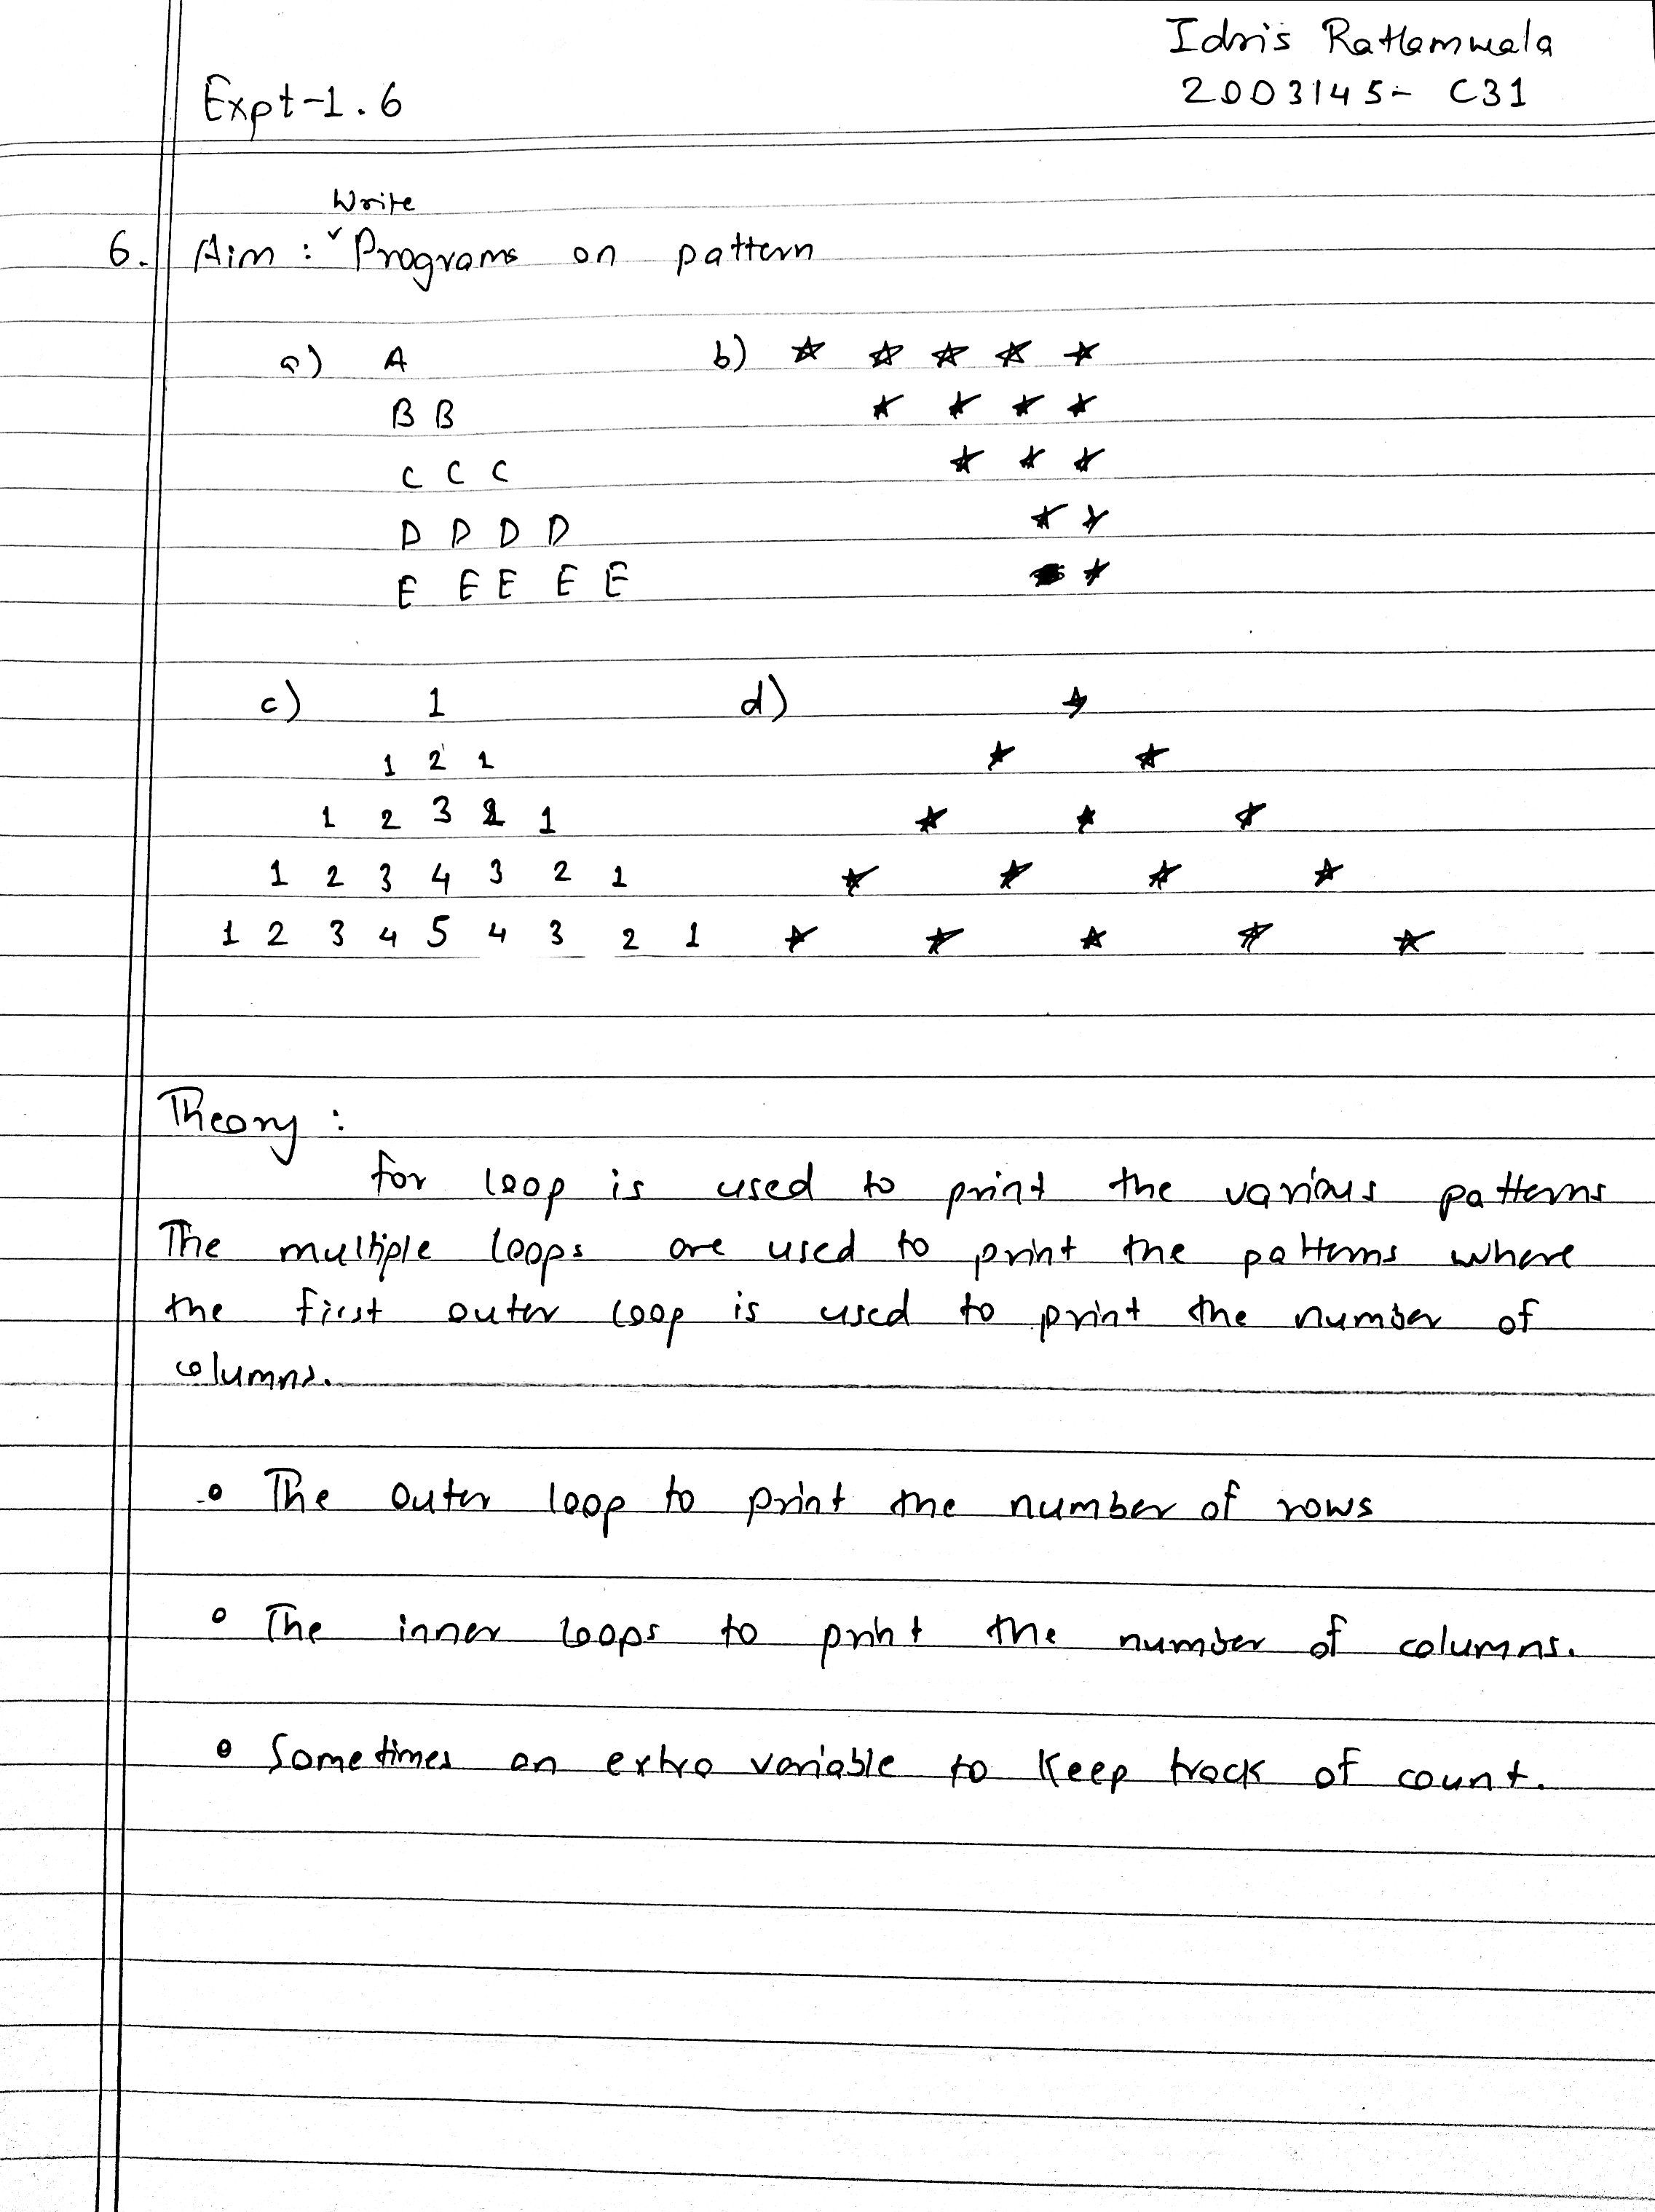 Idris Ratlamwala
2003145- C31
Expt-1.6
Write
6. Aim : Programs on pattern
a) A b) * * * * *
B B * * * *
C C C * * *
D D D D * *
E E E E E *
c) 1 d) *
1 2 1 * *
1 2 3 2 1 * * *
1 2 3 4 3 2 1 * * * *
1 2 3 4 5 4 3 2 1 * * * * *
Theory :
for loop is used to print the various patterns
The multiple loops are used to print the patterns where
the first outer loop is used to print the number of
columns.
• The outer loop to print the number of rows
• The inner loops to print the number of columns.
• Sometimes an extra variable to keep track of count.